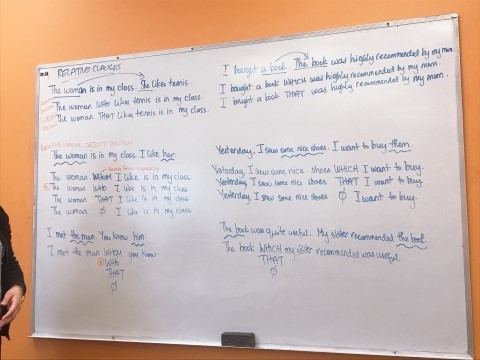 RELATIVE CLAUSES
The woman is in my class. She likes tennis.
The woman WHO likes tennis is in my class.
The woman THAT likes tennis is in my class.
The woman is in my class. I like her.
The woman WHOM I like is in my class
The woman WHO I like is in my class
The woman THAT I like is in my class
The woman Ø I like is in my class
I met the man. You know him.
I met the man WHOM you know.
WHO
THAT
Ø
I bought a book. The book was highly recommended by my mum
I bought a book WHICH was highly recommended by my mum
I bought a book THAT was highly recommended by my mum.
Yesterday, I saw some nice shoes. I want to buy them.
Yesterday, I saw some nice shoes WHICH I want to buy.
Yesterday, I saw some nice shoes THAT I want to buy.
Yesterday, I saw some nice shoes Ø I want to buy.
The book was quite useful. My sister recommended the book.
The book WHICH my sister recommended was useful.
THAT
Ø